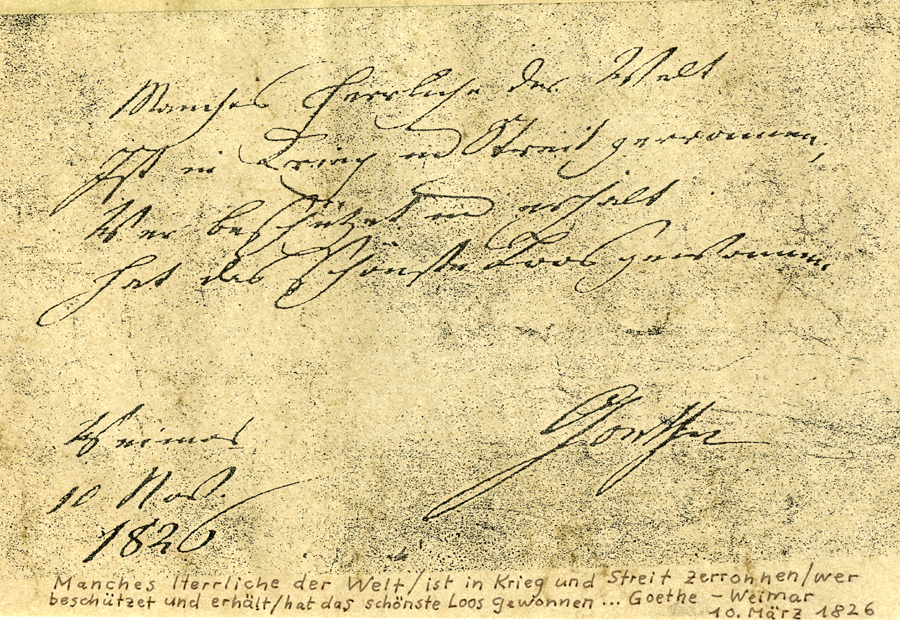 Manches Herrliche der Welt
Ist in Krieg und Streit zerronnen,
Wer beschützet und erhält
Hat das schönste Loos gewonnen.
Goethe
Weimar
10 Nov.
1826
Manches Herrliche der Welt/ist in Krieg und Streit zerronnen/wer
beschützet und erhält/hat das schönste Loos gewonnen ... Goethe - Weimar
10. März 1826